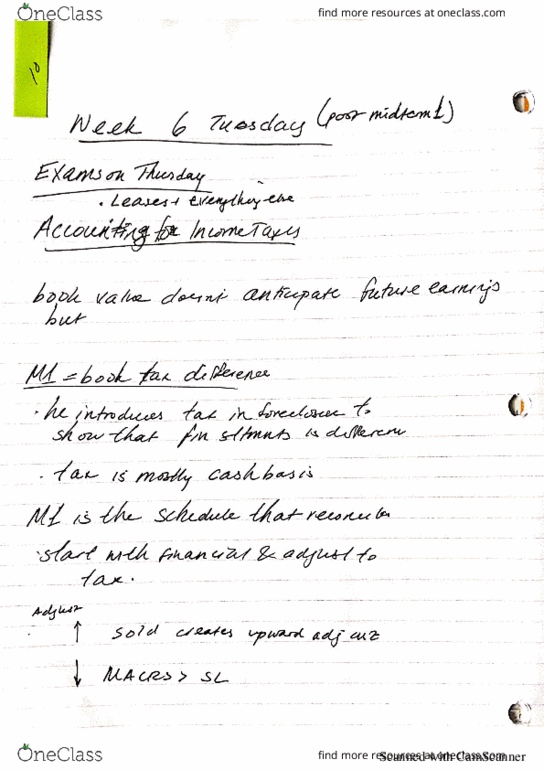 OneClass
find more resources at oneclass.com
10
Week 6 Tuesday (post midterm1)
Exams on Thursday
• Leases + everything else
Accounting for Income Taxes
book value doesnt anticipate future earnings
but
M1 = book tax difference
• he introduces tax in to
show that fin stmnts is different
• tax is mostly cash basis
M1 is the schedule that
• start with financial & adjust to
tax.
Adjust
↑ sold creates upward adj
↓ MACRS > SL
OneClass
find more resources at oneclass.com
Scanned with CamScanner